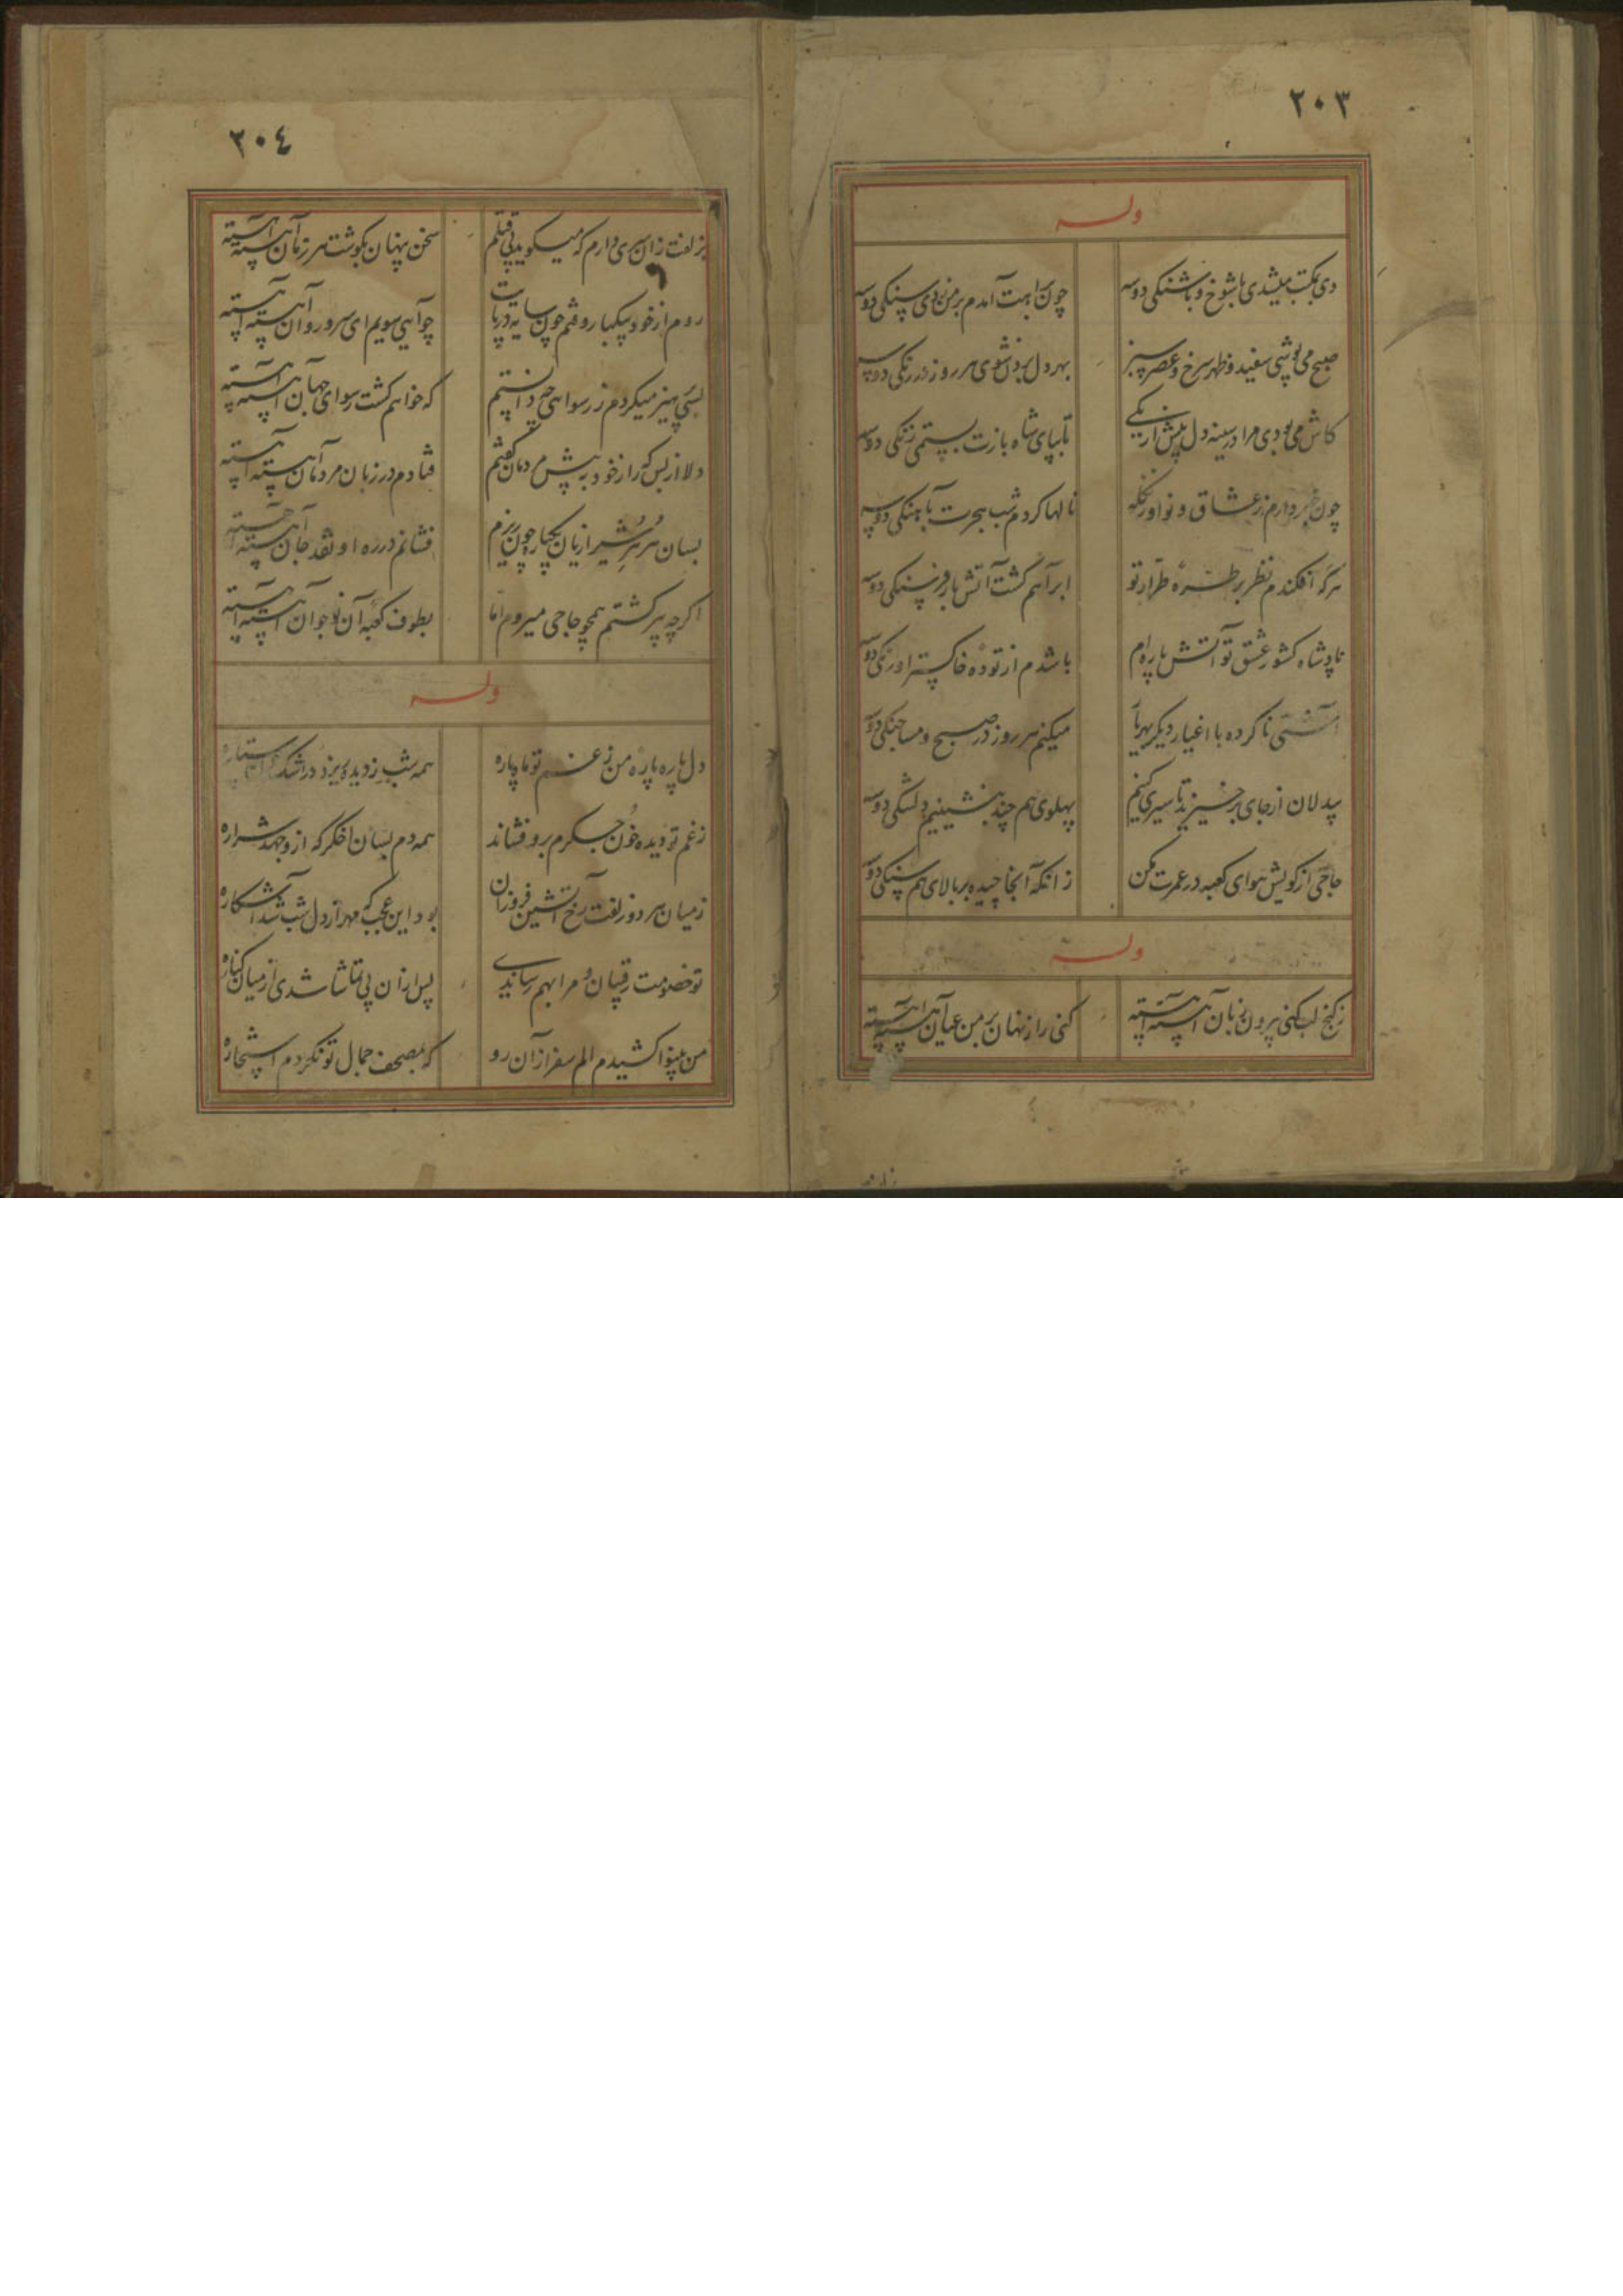 ٢٠٣
وله
دی بمکتب میشدی با شوخ و باشنکی دوسه
چون براهت آمدم بر من زدی سنکی دوسه
صبح می پوشی سفید و ظهر سرخ و عصر سبز
بهر دل بردن شوی هر روز در رنکی دوسه
کاش می بودی مرا در سینه دل پیش از یکی
تا بپای شاه بازت بستمی زنکی دوسه
چون خبر دارم ز عشاق و نوا
نالها کردم شب هجرت بآهنکی دوسه
هرکه افکندم نظر بر طره طرار تو
ابر آهم کشت آتش بار فرسنکی دوسه
پادشاه کشور عشق تو آتش پاره ام
باشدم از توده خاکستر اورنکی دوسه
آشتی ناکرده با اغیار دیکر بهر یار
میکنم هر روز در صبح و مسا جنکی دوسه
بیدلان از جای برخیزید تا سیری کنیم
پهلوی هم چند بنشینیم دلتنکی دوسه
حاجی از کویش هوای کعبه در عمرت مکن
زانکه آنجا چیده بر بالای هم سنکی دوسه
وله
ز کنج لب کنی بیرون زبان آهسته آهسته
کنی راز نهان بر من عیان آهسته آهسته
٢٠٤
بزلفت زان سری دارم که میکوید پی قتلم
سخن پنهان بکوشت هر زمان آهسته آهسته
روم از خود بیکبار و فتم چون سایه در پایت
چو آیی سویم ای سرو روان آهسته آهسته
بسی پرهیز میکردم ز رسوایی چه دانستم
که خواهم کشت رسوای جهان آهسته آهسته
دلا از بس که راز خود به پیش مردمان کفتم
فتادم در زبان مردمان آهسته آهسته
بسان هرزه شیرازیان یکبار چون ریزم
فشانم در ره او نقد جان آهسته آهسته
اکرچه پیر کشتم همچو حاجی میروم اما
بطوف کعبه آن نوجوان آهسته آهسته
وله
دل پاره پاره من ز غم تو ماه پاره
همه شب ز دیده ریزد در اشک ستاره
ز غم تو دیده خون جکرم برو فشاند
همه دم بسان اخکر که ازو جهد شراره
ز میان هر دو زلفت رخ آتشین فروزان
بود این عجب که مهر از دل شب شد آشکاره
تو خصومت رقیبان و مرا بهم رساندی
پس ازان پی تماشا شدی از میان کناره
من بینوا کشیدم الم سفر ازان رو
که بمصحف جمال تو نکردم استخاره